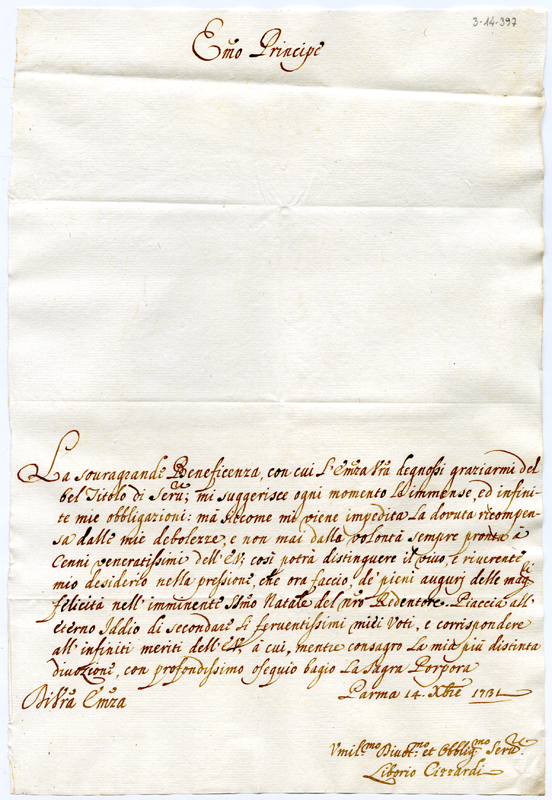 3-14-397
Emo Principe
La souragrande Beneficenza, con cui l'Emza Vra degnossi graziarmi del
bel Titolo di Seru.e; mi suggerisce ogni momento le immense, ed infini-
te mie obbligazioni: mà siccome mi viene impedita la dovuta ricompen-
sa dalle mie debolezze, e non mai dalla volontà sempre pronta à
Cenni veneratissimi dell'EV; così potrà distinguere il vivo, e riverente
mio desiderio nella pressione, che ora faccio, de' pieni augurj delle mag.ri
felicità nell'imminente Smo Natale del nro Redentore. Piaccia all'
eterno Iddio di secondare li ferventissimi miei Voti, e corrispondere
all'infiniti meriti dell'EV, à cui, mentre consagro la mia più distinta
divozione, con profondissimo ossequio bagio La Sagra Porpora
Di Vra Emza Parma 14. Xbre 1731
Vmil.mo Diuot.mo et Obblig.mo Seru.e
Liborio Cizzardi